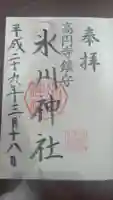 奉拝
高円寺鎮守
氷川神社
平成二十九年十二月十八日